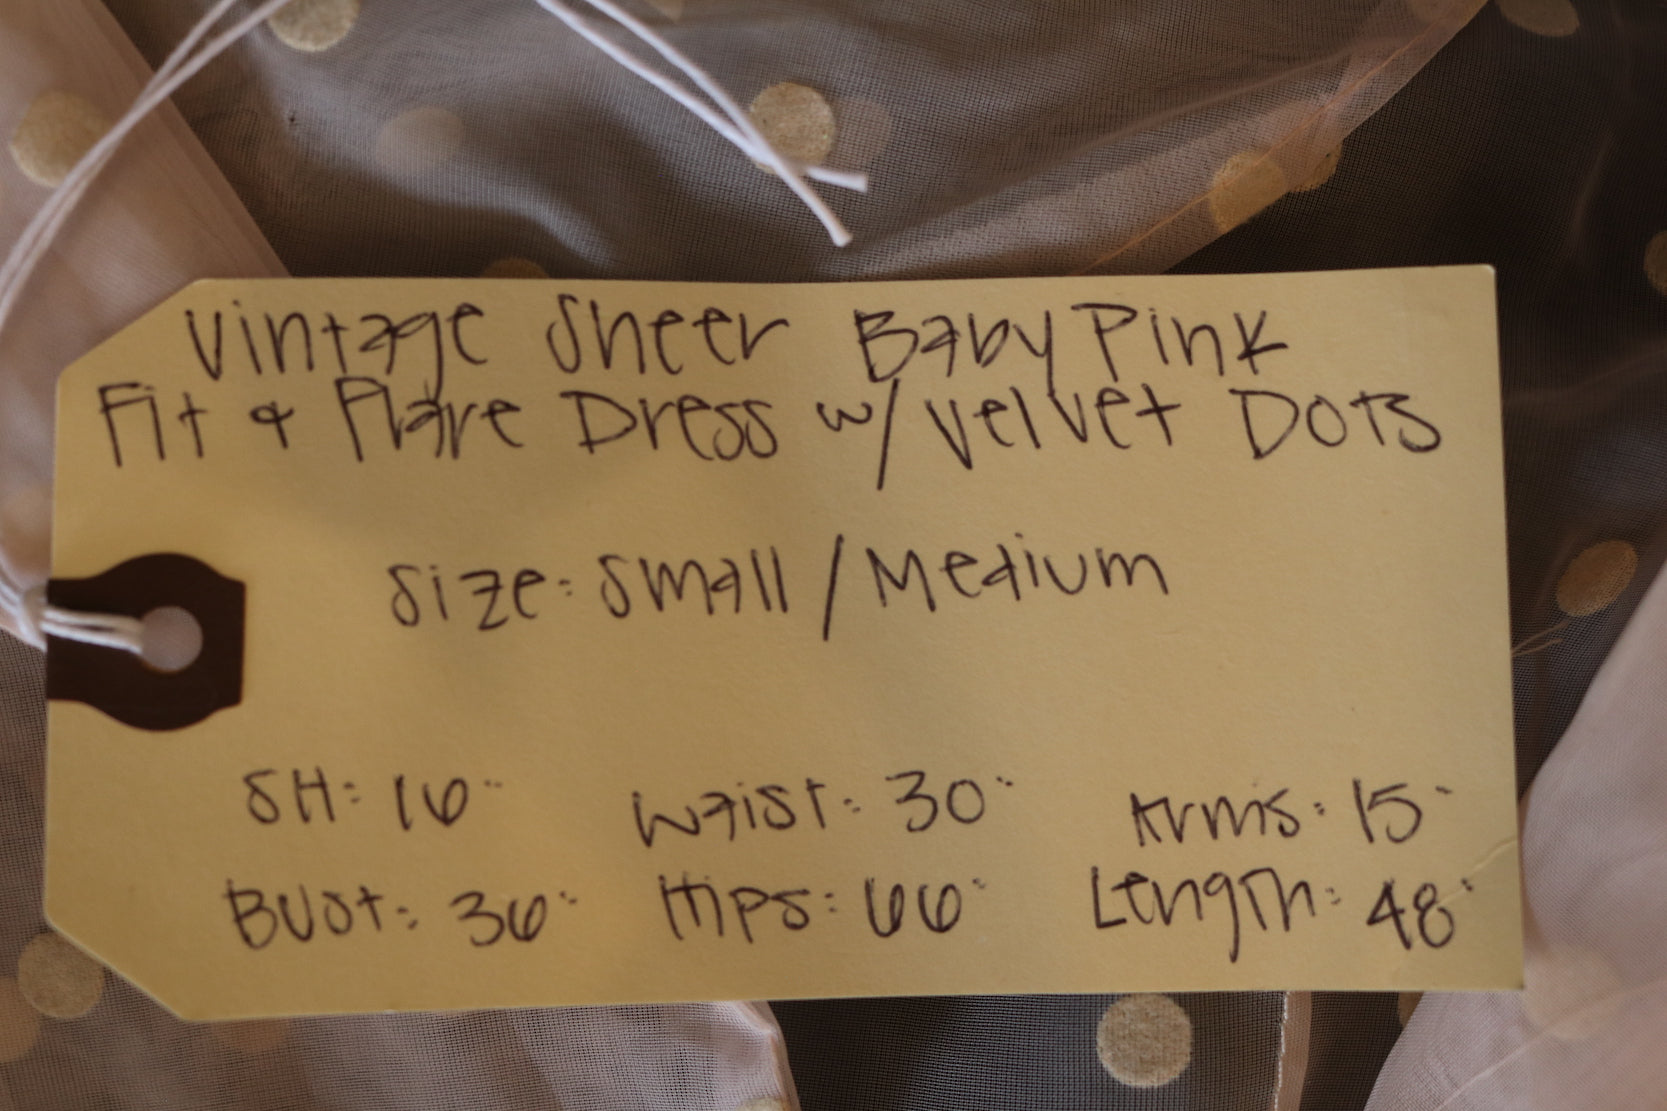 Vintage Sheer Baby Pink
Fit & Flare Dress w/ Velvet Dots
Size: Small / Medium
SH: 16" Waist: 30" Arms: 15"
Bust: 36" Hips: 66" Length: 48"